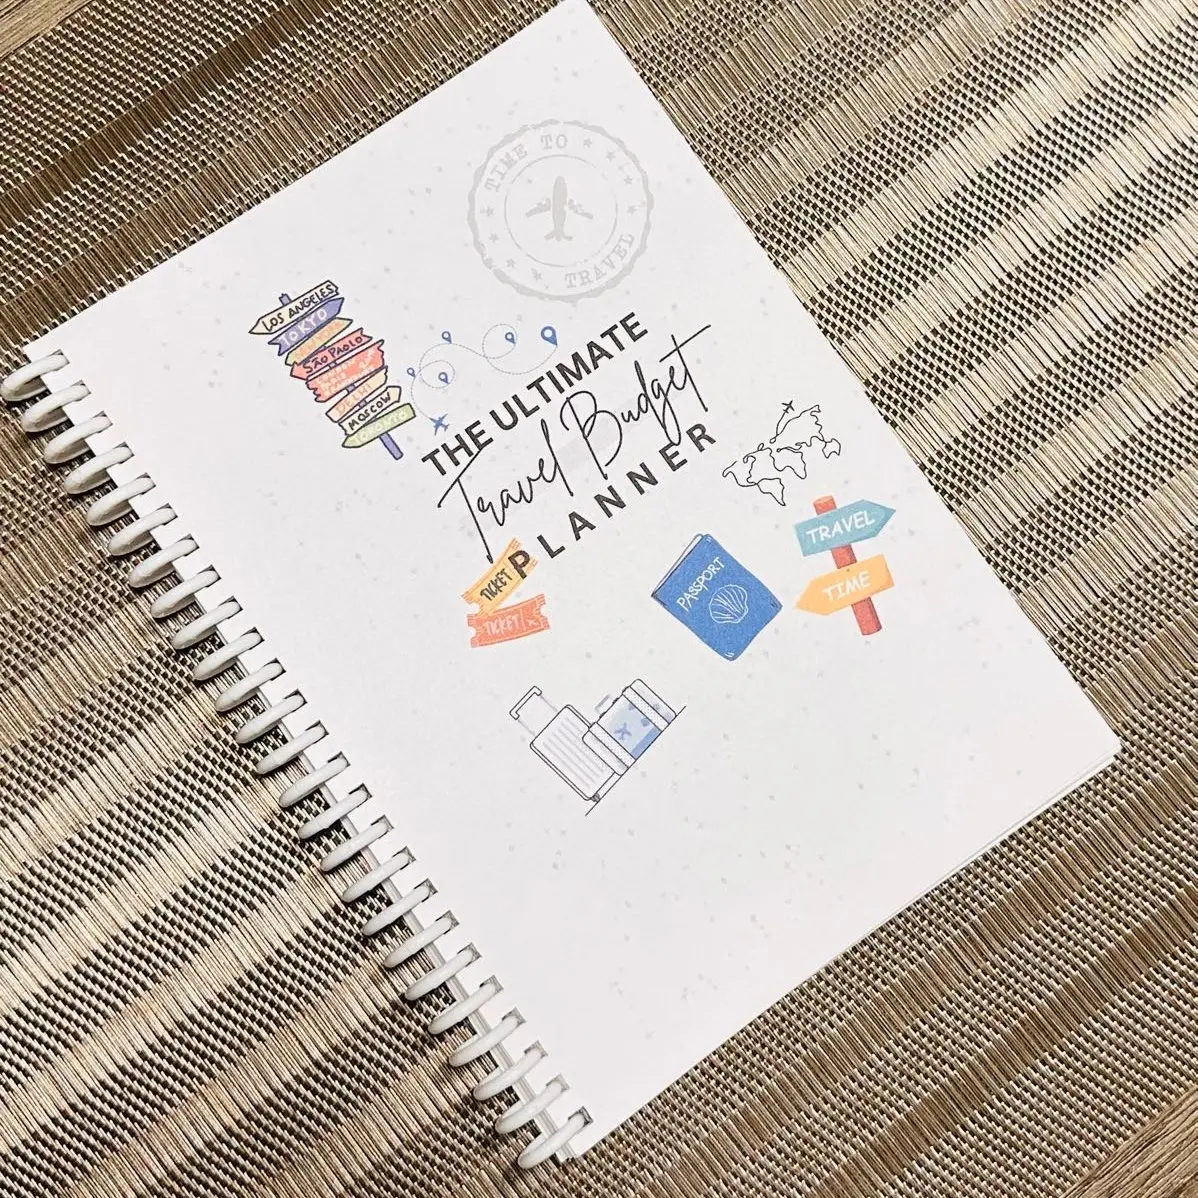 TIME TO
TRAVEL
LOS ANGELES
TOKYO
SÃO PAULO
DELHI
MOSCOW
TORONTO
THE ULTIMATE
Travel Budget
PLANNER
TICKET
TICKET
PASSPORT
TRAVEL
TIME